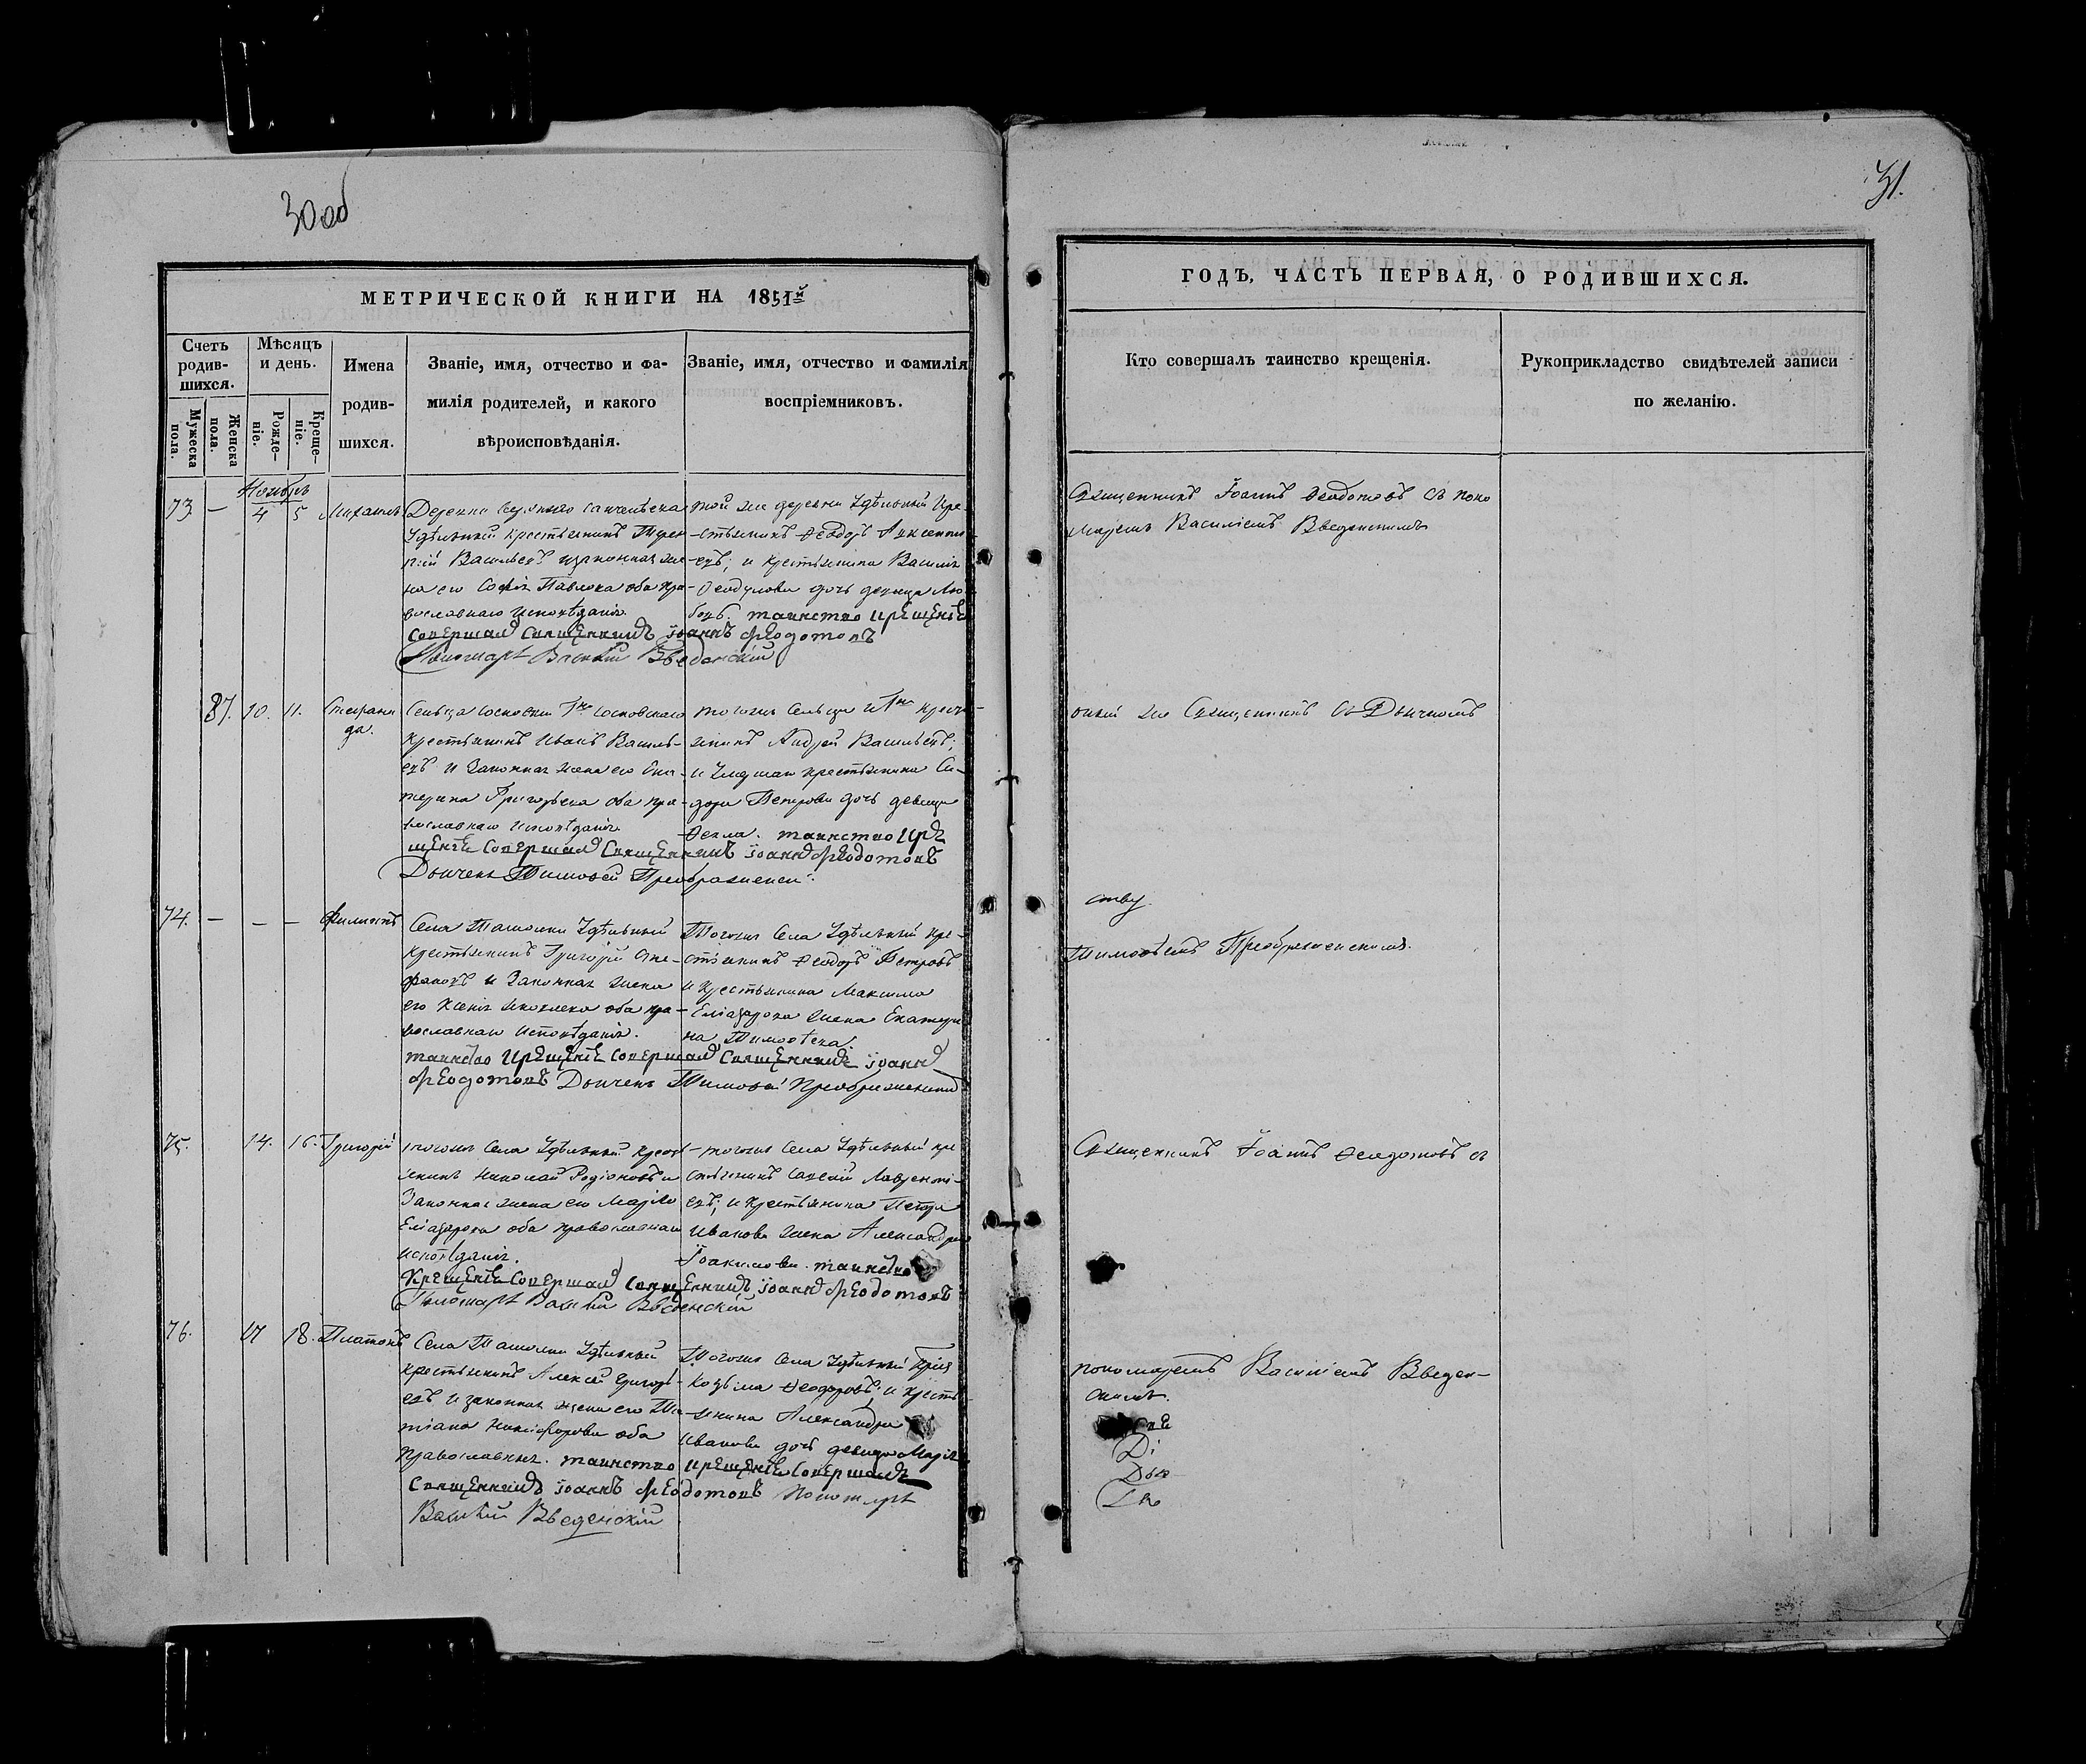 30 об
31.
МЕТРИЧЕСКОЙ КНИГИ НА 1851й
Счетъ родив-шихся.
Мужеска пола.
Женска пола.
Мѣсяцъ и день.
Рожде-ніе.
Креще-ніе.
Имена родив-шихся.
Званіе, имя, отчество и фа-
милія родителей, и какого
вѣроисповѣданія.
Званіе, имя, отчество и фамилія
воспріемниковъ.
Ноябрь
73. — 4 5 Михаилъ
Деревни
Удѣльный крестьянинъ
Васильевъ и законная же-
на его Софія Павлова оба пра-
вославнаго исповѣданія.
той же деревни Удѣльный кре-
стьянинъ Ѳеодоръ Авксентi-
евъ; и крестьянина Василія
Ѳеодулова дочь девица Лю-
бовь. таинство крещенїе
совершал священникъ їоаннъ феодотовъ
Пономарь Василій Введенскій
37. 10. 11. Стефани
да.
Сельца Сосновки Гна Сосновскаго
крестьянинъ Иванъ Василь-
евъ и законная жена его Ека-
терина Григорьева оба пра-
вославнаго исповѣданія.
тогоже сельца и Гна крест-
янинъ Андрей Васильевъ;
и крестьянина Си-
дора Петрова дочь девица
Ѳекла. таинство кре
щенїе совершал священникъ їоаннъ феодотовъ
Дьячекъ Тимоѳей Преображенскій
74. — — — Филиппъ
Села Ташолки Удѣльный
крестьянинъ Григорій Сте-
фановъ и законная жена
его Ксенія Яковлева оба пра-
вославнаго исповѣданія.
Тогоже села Удѣльный кре-
стьянинъ Ѳеодоръ Петровъ
и крестьянина Максима
Еліазарова жена Екатери
на Тимоѳеева.
таинство крещенїе совершал священникъ їоаннъ
феодотовъ Дьячекъ Тимоѳей Преображенскій
75. 14. 16. Григорій
тогоже села Удѣльный крест
янинъ Николай Родіоновъ и
законная жена его Марія
Еліазарова оба православнаго
исповѣданія.
тогоже села Удѣльный кре
стьянинъ Савелій Лаврентi-
евъ; и крестьянина Петра
Иванова жена Александра
Іоакимова. таинство
Крещенїе совершал священникъ їоаннъ феодотовъ
Пономарь Василій Введенскій
76. 17 18. Платонъ
Села Ташолки Удѣльный
крестьянинъ Алексей Григорь-
евъ и законная жена его Та-
тіана Никифорова оба
православные. таинство крещенїе совершалъ
Тогоже села Удѣльный
Козьма Ѳеодоровъ; и кресть-
янина Александра
Иванова дочь девица Марія
священникъ їоаннъ феодотовъ Пономарь
Василій Введенскій
ГОДЪ, ЧАСТЬ ПЕРВАЯ, О РОДИВШИХСЯ.
Кто совершалъ таинство крещенія.
Рукоприкладство свидѣтелей записи
по желанію.
Священникъ Іоаннъ Ѳеодотовъ съ поно
маремъ Василіемъ Введенскимъ
оный же Священникъ съ Дьячкомъ
Тимоѳеемъ Преображенскимъ.
Священникъ Іоаннъ Ѳеодотовъ съ
пономаремъ Василіемъ Введен-
скимъ.